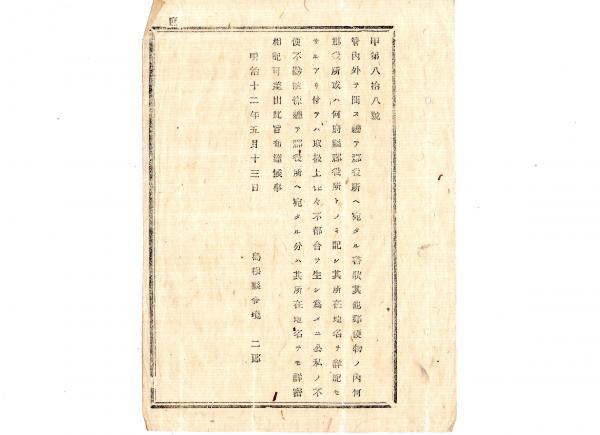 甲第八拾八號
管内外ヲ問ス總テ郡役所ヘ宛タル書狀其他郵便物ノ内何
郡役所或ハ何府縣郡役所トノミ記シ其所在地名ヲ詳記セ
サルアリ付テハ取扱上往々不都合ヲ生シ爲メニ公私ノ不
便不尠候條總テ郡役所ヘ宛タル分ハ其所在地名ヲモ詳密
相記可差出此旨布達候事
明治十二年五月十三日
島根縣令境二郎